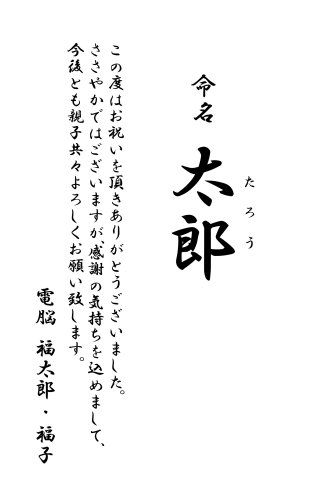 命名
たろう
太郎
この度はお祝いを頂きありがとうございました。
ささやかではございますが、感謝の気持ちを込めまして、
今後とも親子共々よろしくお願い致します。
電脳 福太郎・福子